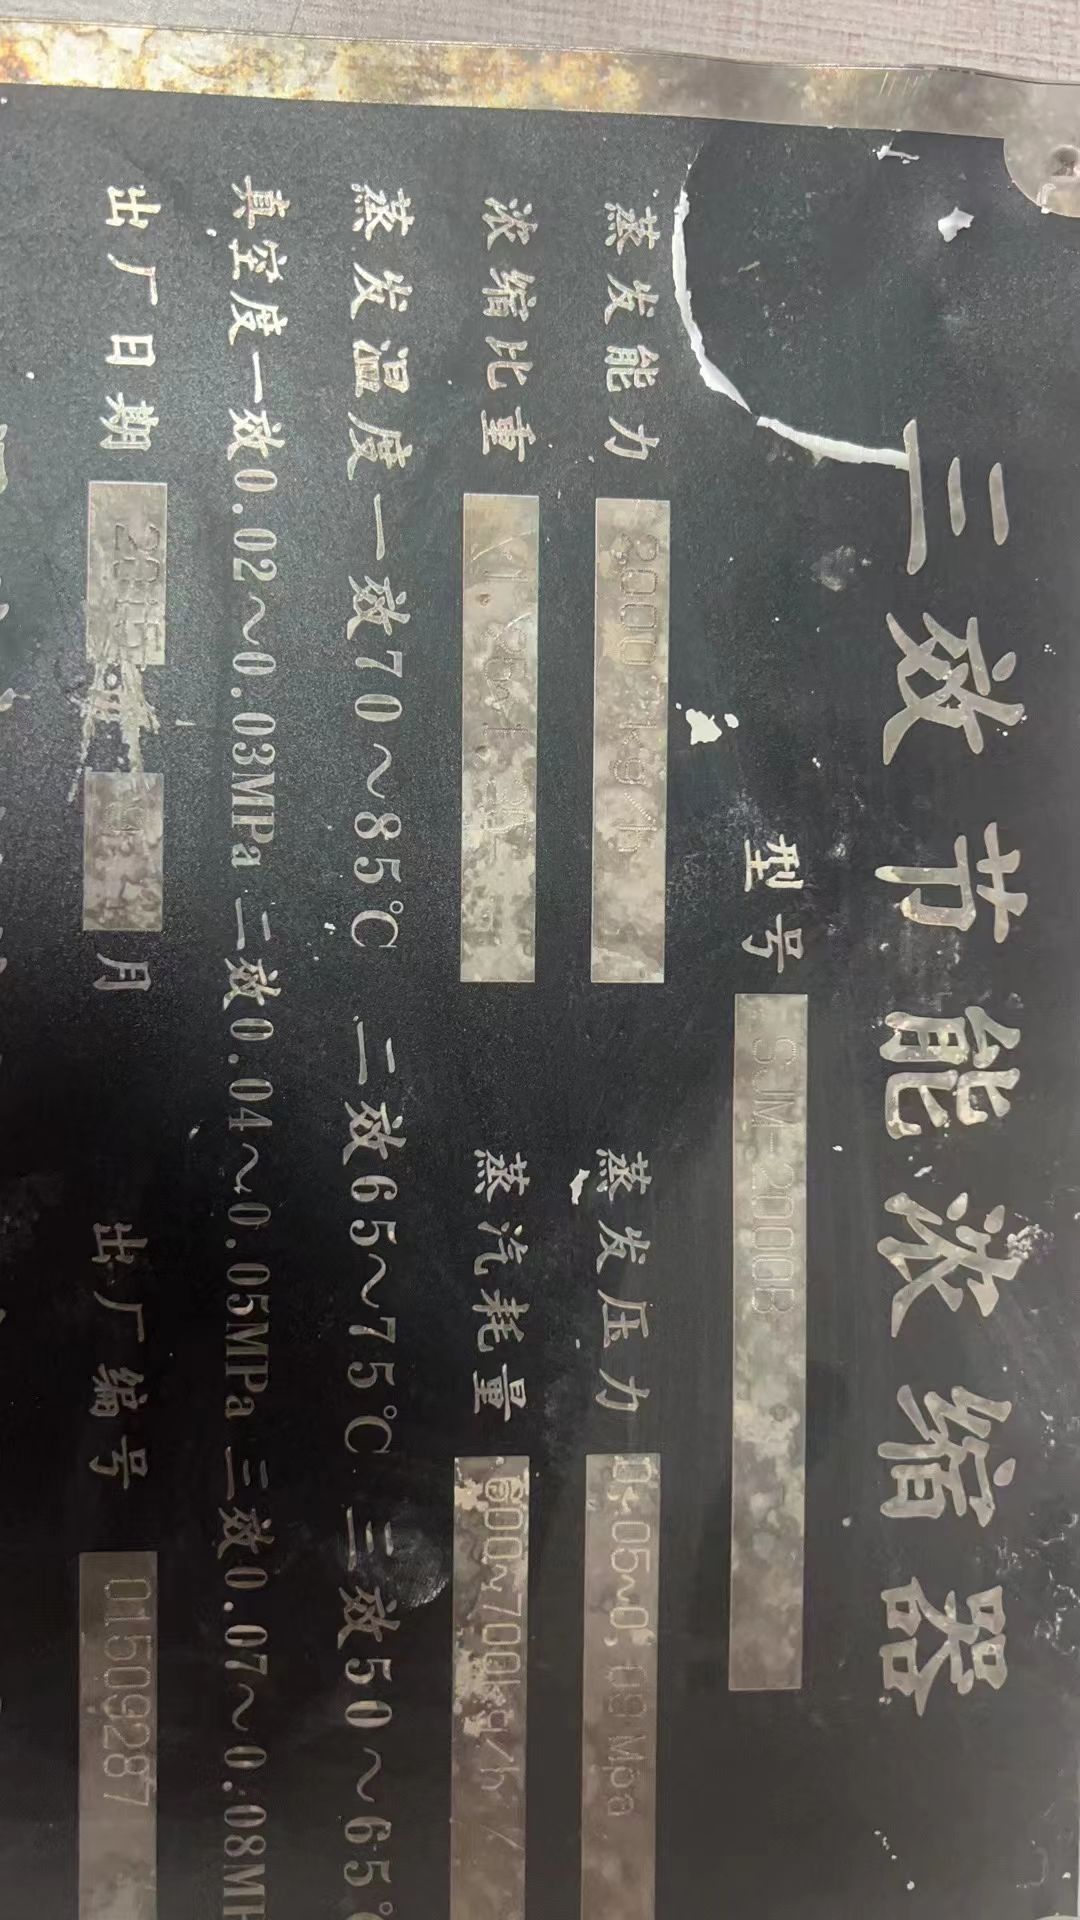 三效节能浓缩器
型号 SJM-2000B
蒸发能力 2000 kg/h 蒸发压力 0.05~0.09Mpa
浓缩比重 蒸汽耗量 600~700kg/h
蒸发温度一效70~85℃ 二效65~75℃ 三效50~65℃
真空度一效0.02~0.03MPa 二效0.04~0.05MPa 三效0.07~0.08MP
出厂日期 2015年 月 出厂编号 01509287